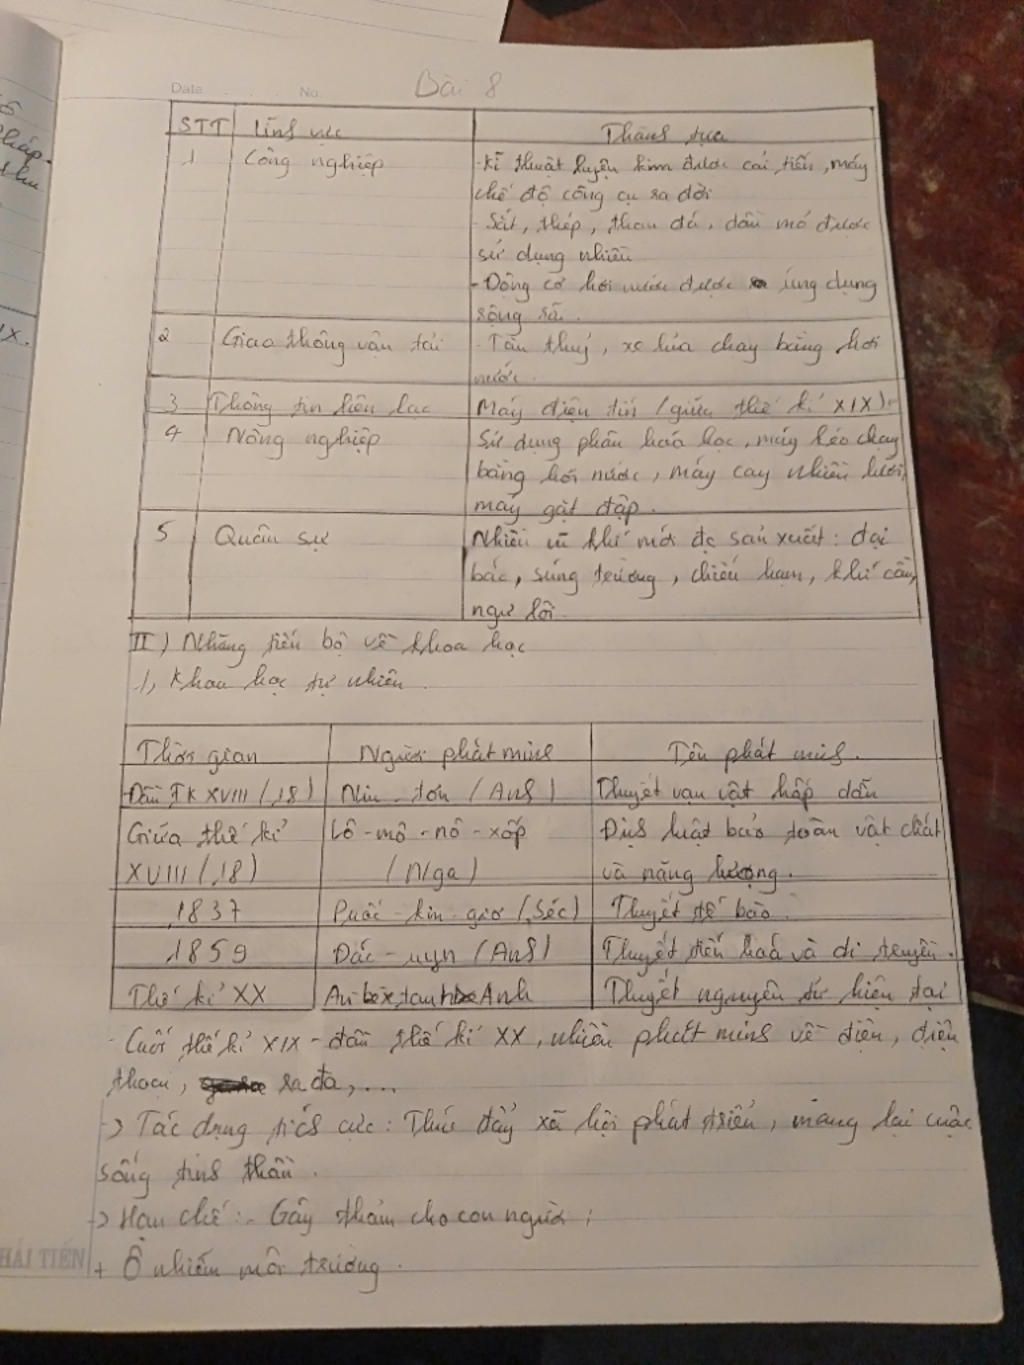 Date No.
Bài 8
STT Lĩnh vực Thành tựu
1 Công nghiệp - Kĩ thuật luyện kim được cải tiến, máy
chế độ công cụ ra đời
- Sắt, thép, than đá, dầu mỏ được
sử dụng nhiều
- Động cơ hơi nước được ứng dụng
rộng rãi.
2 Giao thông vận tải - Tàu thuỷ, xe lửa chạy bằng hơi
nước.
3 Thông tin liên lạc Máy điện tín (giữa thế kỉ XIX).
4 Nông nghiệp Sử dụng phân hoá học, máy kéo chạy
bằng hơi nước, máy cày nhiều lưỡi,
máy gặt đập.
5 Quân sự Nhiều vũ khí mới đc sản xuất: đại
bác, súng trường, chiến hạm, khí cầu,
ngư lôi.
II) Những tiến bộ về khoa học
1, Khoa học tự nhiên.
Thời gian Người phát minh Tên phát minh.
Đầu TK XVIII (18) Niu-tơn (Anh) Thuyết vạn vật hấp dẫn
Giữa thế kỉ Lô-mô-nô-xốp Định luật bảo toàn vật chất
XVIII (18) (Nga) và năng lượng.
1837 Puốc-kin-giơ (Séc) Thuyết tế bào.
1859 Đác-uyn (Anh) Thuyết tiến hoá và di truyền.
Thế kỉ XX Thuyết nguyên tử hiện đại
- Cuối thế kỉ XIX - đầu thế kỉ XX, nhiều phát minh về điện, điện
thoại, ra đa,...
-> Tác dụng tích cực: Thúc đẩy xã hội phát triển, mang lại cuộc
sống tinh thần.
-> Hạn chế:- Gây thảm cho con người;
+ Ô nhiễm môi trường.
HẢI TIẾN